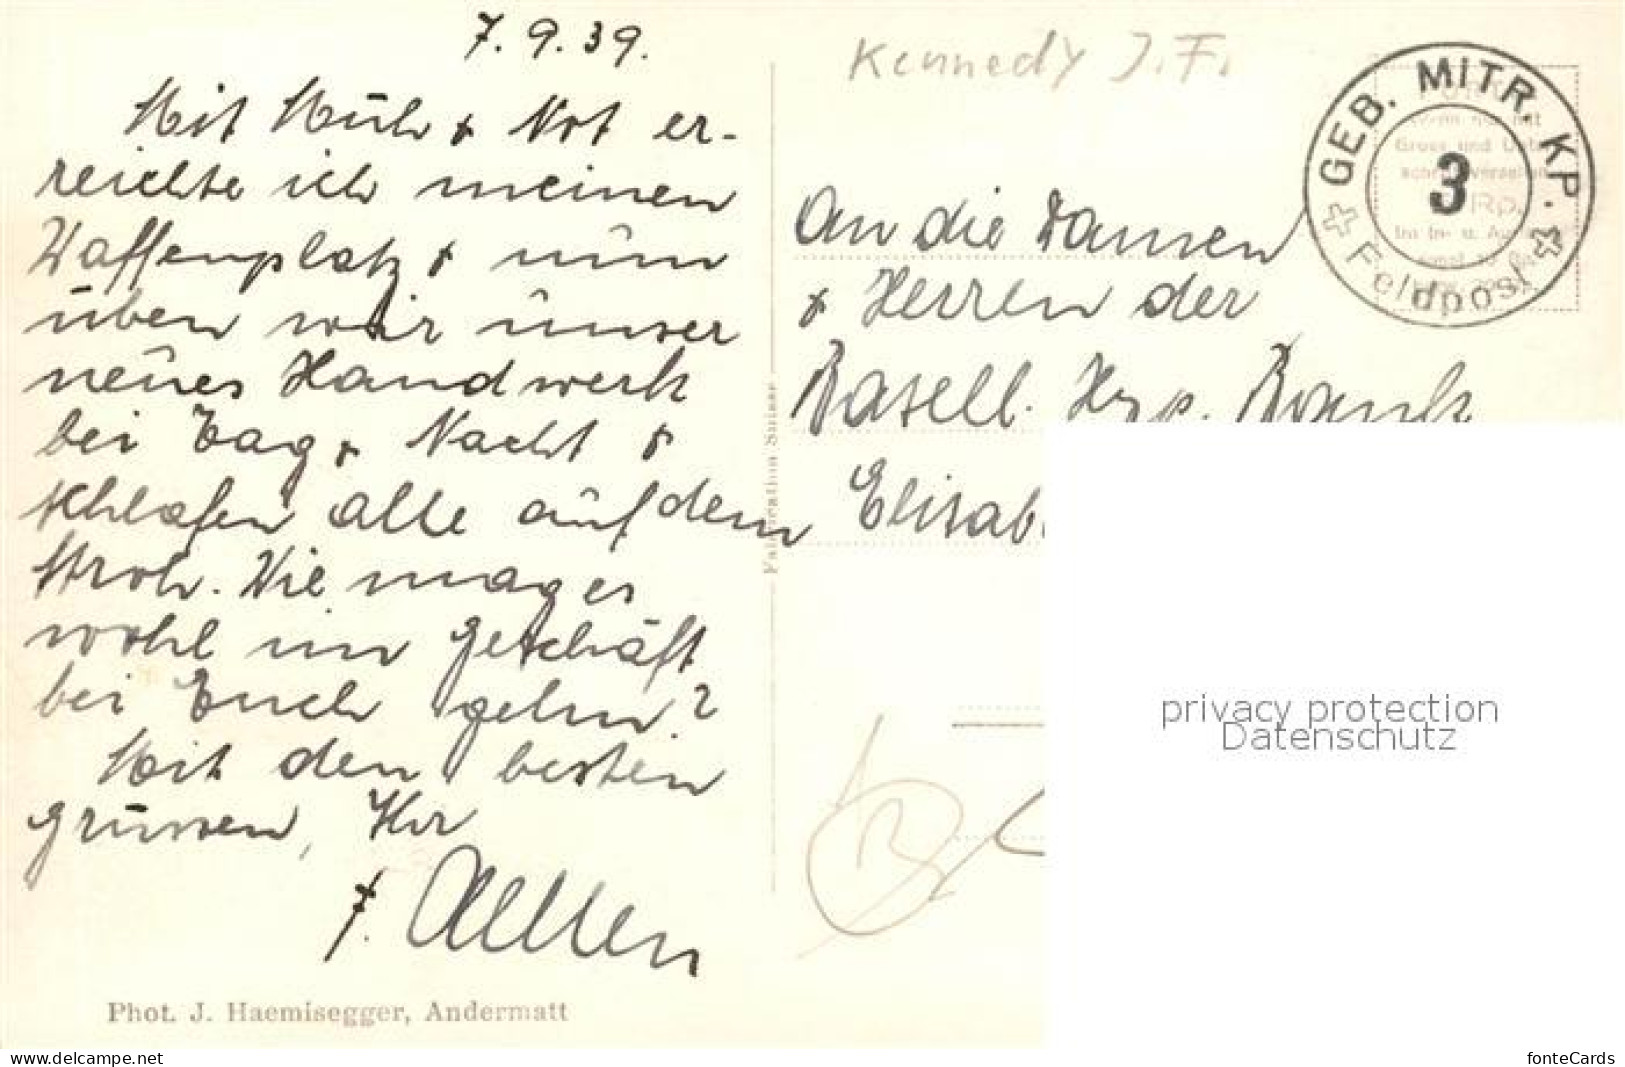 7. 9. 39.
Mit Müh & Not er-
reichte ich meinen
Waffenplatz & nun
üben wir unser
neues Handwerk
bei Tag & Nacht &
schlafen alle auf dem
Stroh. Wie mag es
wohl im Geschäft
bei Euch gehn?
Mit den besten
Grüssen, Ihr
Phot. J. Haemisegger, Andermatt
Fabrication Suisse
Kennedy J. F.
GEB. MITR. KP.
3
Feldpost
An die Damen
& Herren der
Basell. Hyp. Bank
Elisab
privacy protection
Datenschutz
www.delcampe.net
fonteCards